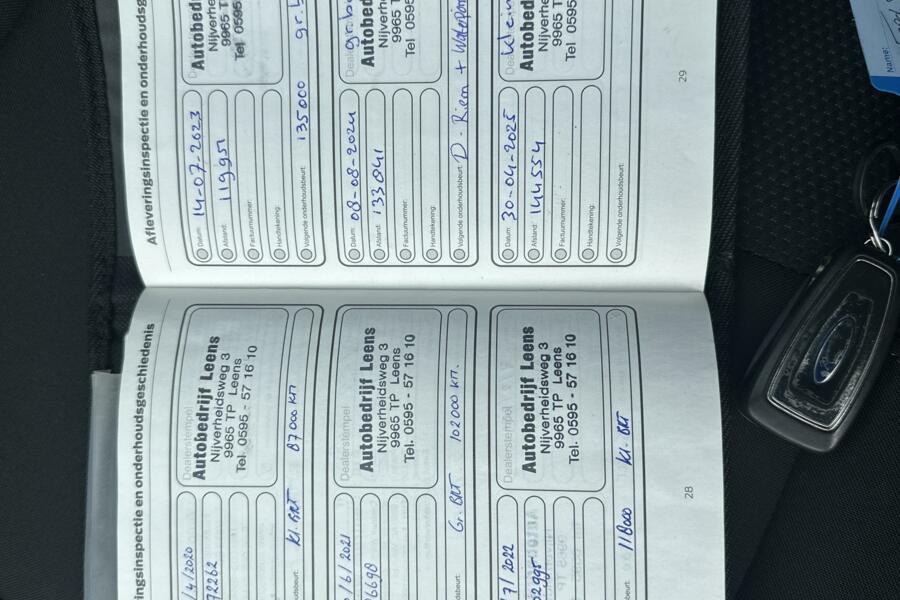 ringsinspectie en onderhoudsgeschiedenis
/4/2020
72262
Dealerstempel
Autobedrijf Leens
Nijverheidsweg 3
9965 TP Leens
Tel. 0595 - 57 16 10
Kl. BRT 87000 km
/6/2021
6698
Dealerstempel
Autobedrijf Leens
Nijverheidsweg 3
9965 TP Leens
Tel. 0595 - 57 16 10
Gr. BRT 102000 km.
7/2022
02995
Dealerstempel
Autobedrijf Leens
Nijverheidsweg 3
9965 TP Leens
Tel. 0595 - 57 16 10
118000 Kl. BRT
28
Afleveringsinspectie en onderhouds
Datum: 14-07-2023
Afstand: 119951
Factuurnummer:
Handtekening:
Autobed
Nijverhe
9965 T
Tel. 0595
Volgende onderhoudsbeurt: 135000 gr. b
Datum: 08-08-2024
Afstand: 133041
Factuurnummer:
Handtekening:
gr. bu
Autobed
Nijverhe
9965 T
Tel. 0595
Volgende onderhoudsbeurt: D-Riem + Waterpom
Datum: 30-04-2025
Afstand: 144554
Factuurnummer:
Handtekening:
Klein
Autobed
Nijverhe
9965 T
Tel. 0595
Volgende onderhoudsbeurt:
29
Name:
Ford